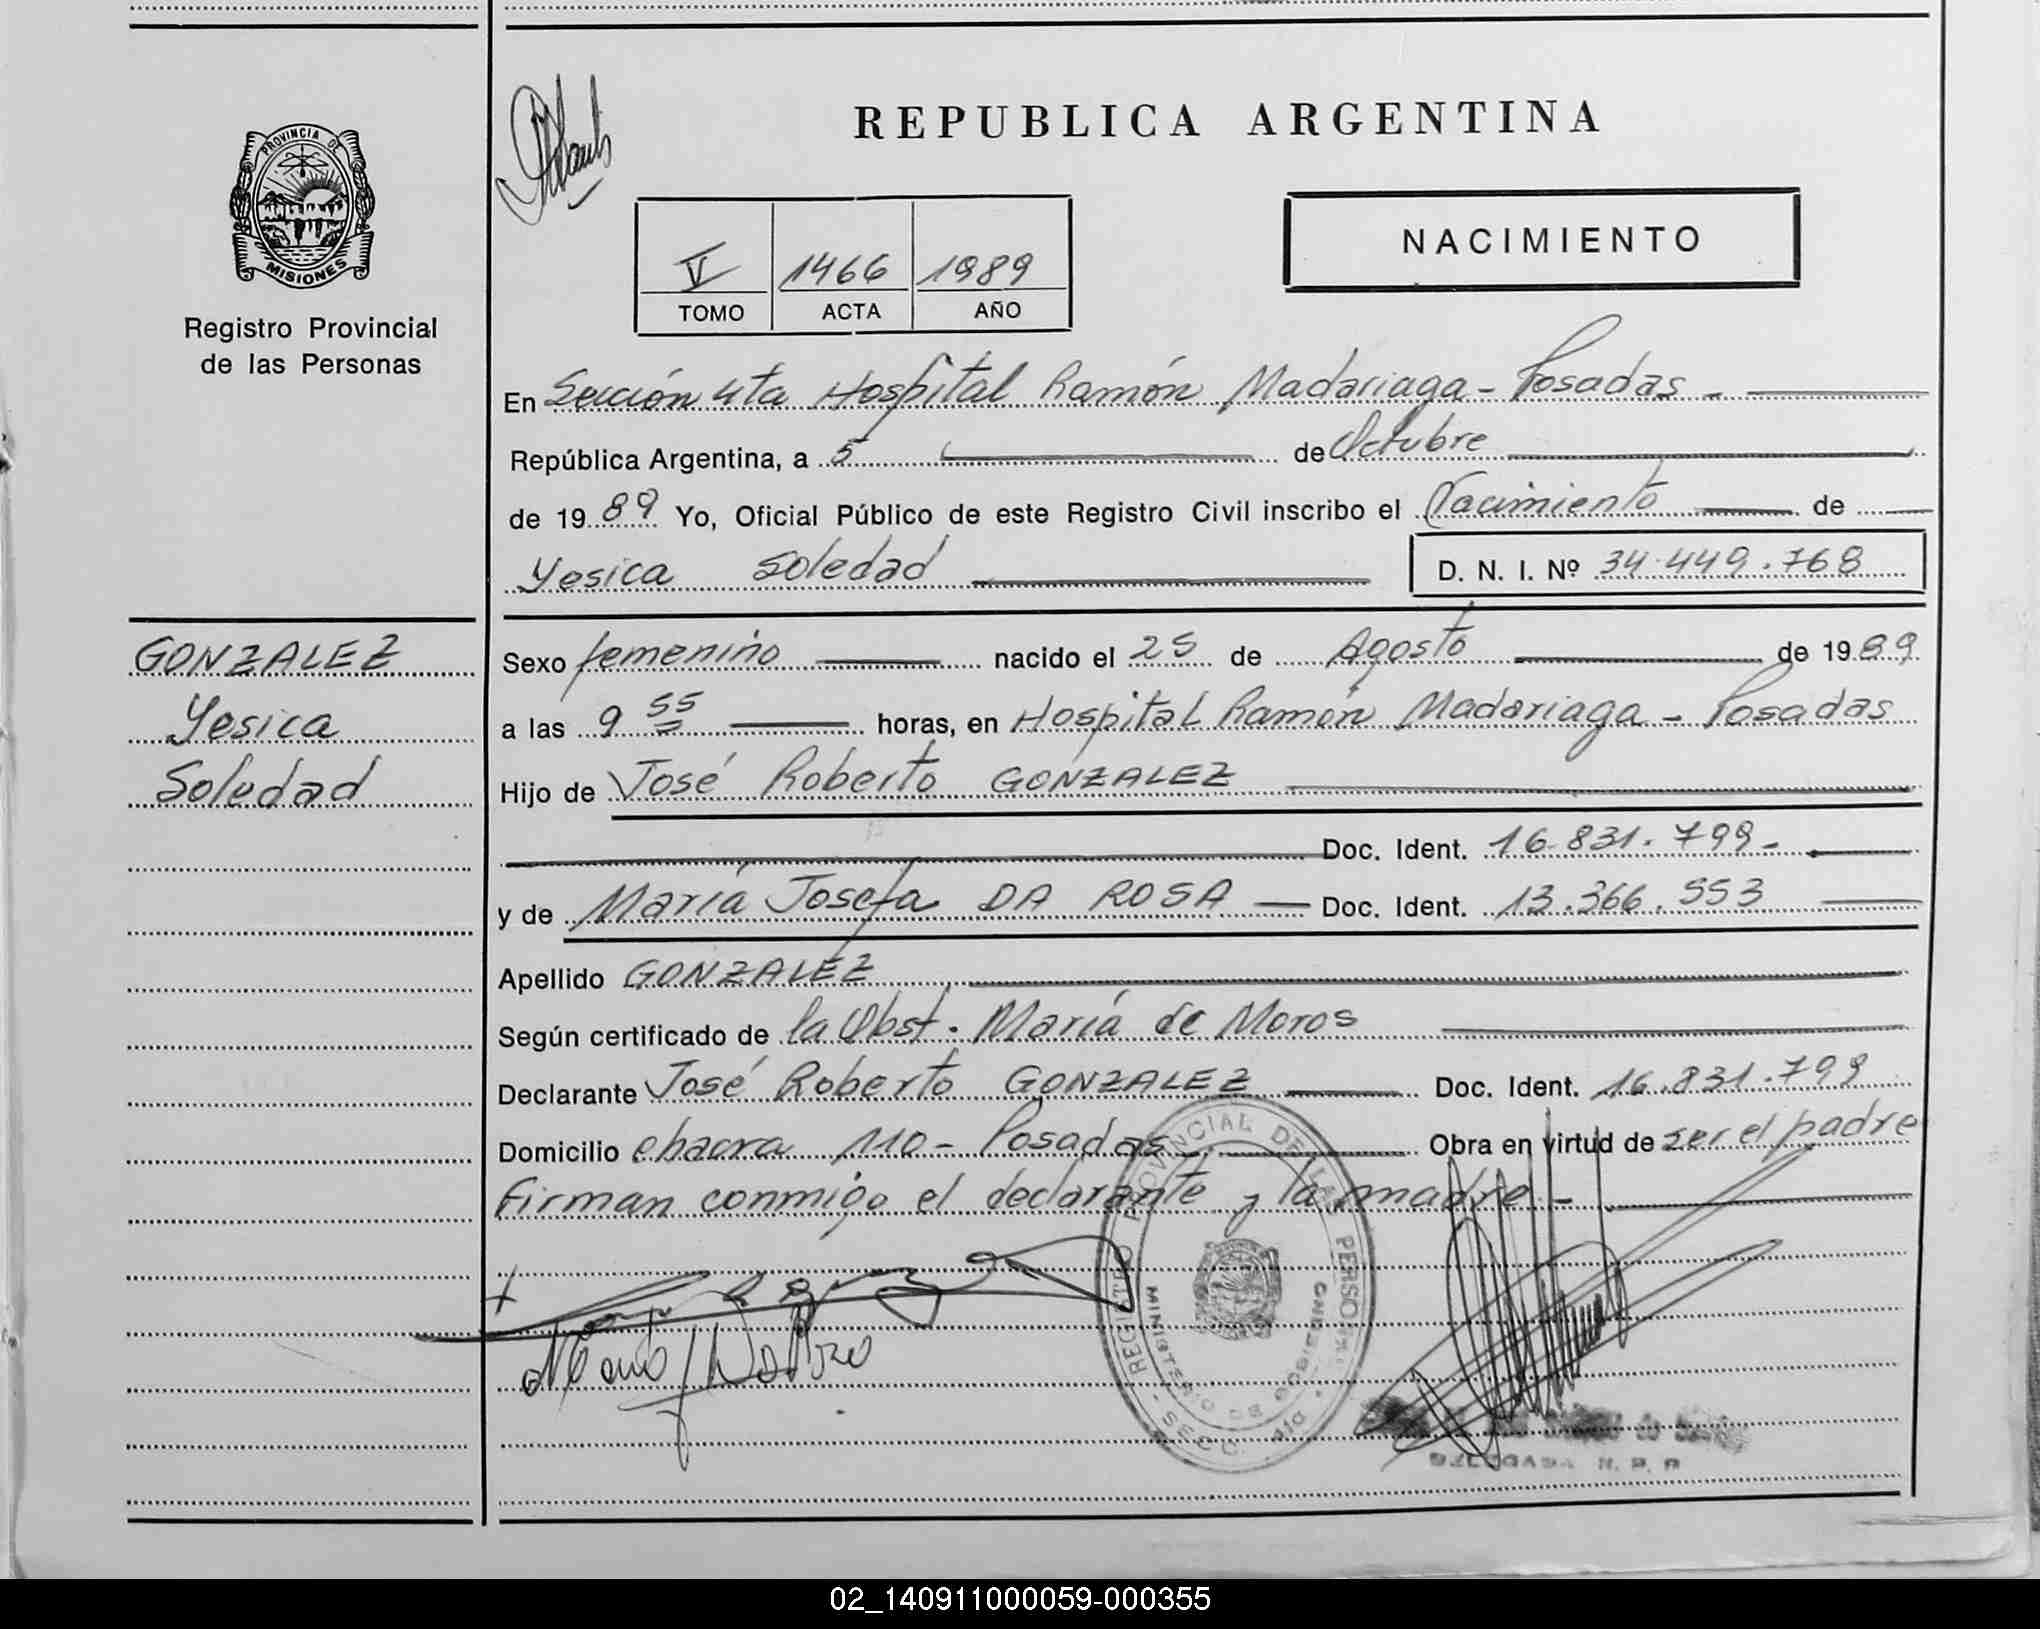 REPUBLICA ARGENTINA
PROVINCIA DE
MISIONES
Registro Provincial
de las Personas
NACIMIENTO
V 1466 1989
TOMO ACTA AÑO
En Sección 4ta Hospital Ramón Madariaga - Posadas -
República Argentina, a 5 de Octubre
de 1989 Yo, Oficial Público de este Registro Civil inscribo el Nacimiento de
Yesica Soledad D. N. I. Nº 34.449.768
GONZALEZ
Yesica
Soledad
Sexo femenino nacido el 25 de Agosto de 1989
a las 9 55 horas, en Hospital Ramón Madariaga - Posadas
Hijo de José Roberto GONZALEZ
Doc. Ident. 16.831.799.-
y de María Josefa DA ROSA Doc. Ident. 13.366.553
Apellido GONZALEZ
Según certificado de la Obst. María de Moros
Declarante José Roberto GONZALEZ Doc. Ident. 16.831.799
Domicilio chacra 110 - Posadas Obra en virtud de ser el padre
Firman conmigo el declarante y la madre -
REGISTRO PROVINCIAL DE LAS PERSONAS
MINISTERIO DE GOBIERNO
02_140911000059-000355